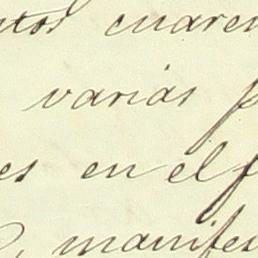 ntos cuaren
varias p
es en el f
, manifes